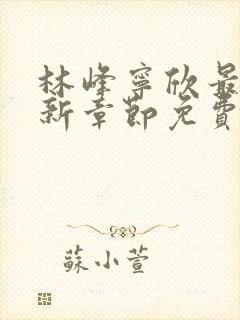 林峰寧欣最
新章節免費
蘇小萱